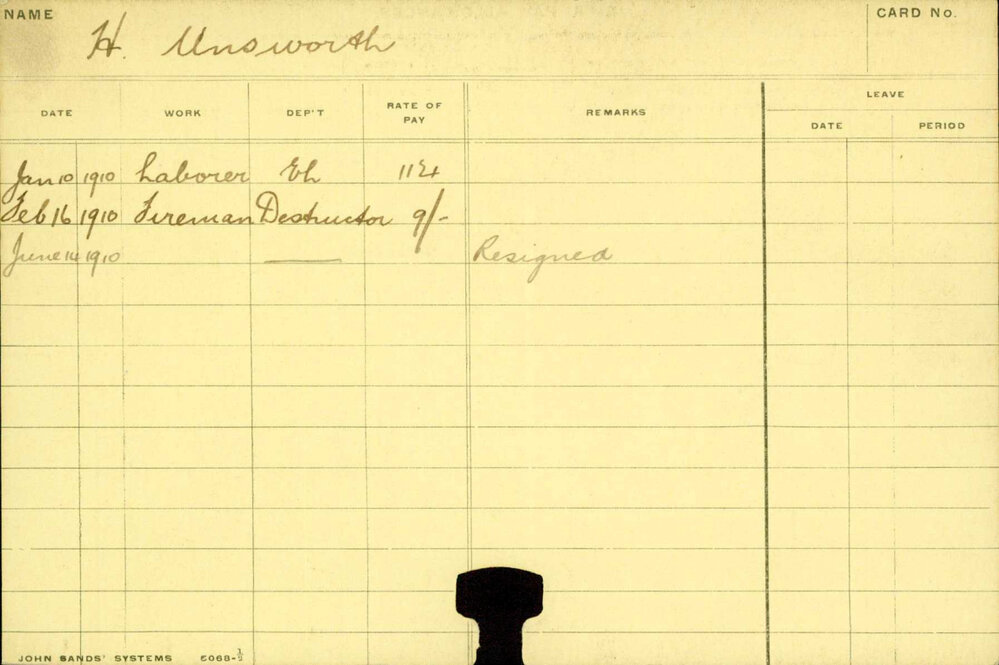 NAME
H. Unsworth
CARD No.
DATE WORK DEP'T RATE OF PAY REMARKS LEAVE
DATE PERIOD
Jan 10 1910 Laborer
Feb 16 1910 Fireman Destructor 9/-
June 14 1910 —— Resigned
JOHN SANDS' SYSTEMS